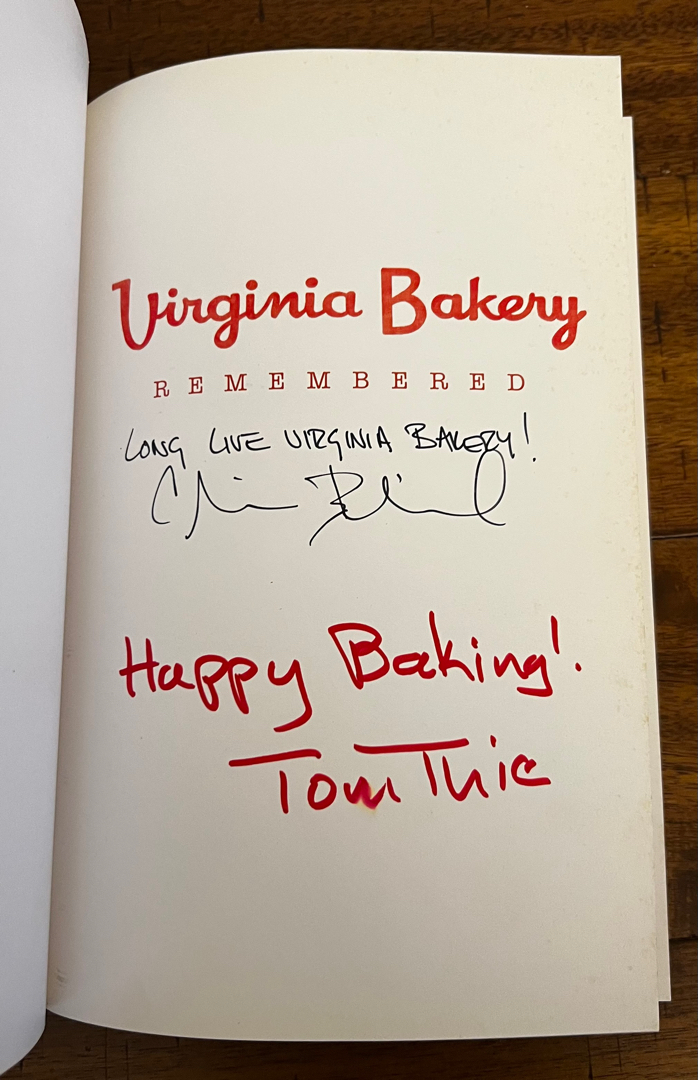 Virginia Bakery
REMEMBERED
LONG LIVE VIRGINIA BAKERY!
Happy Baking!
Tom Thie